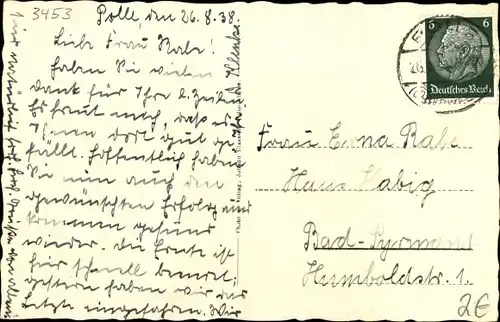 3453
Polle, den 26.8.38.
Liebe Frau Rabe!
Haben Sie vielen
Dank für Ihre l. Zeilen
Es freut mich, daß es
Ihnen dort gut ge-
fällt. Hoffentlich haben
Sie nun auch den
gewünschten Erfolg und
kommen gesund
wieder. Die Ernte ist
hier schnell beendet,
gestern haben wir das
Letzte eingefahren. Wir
6 6
Deutsches Reich
Frau Erna Rabe
Haus Habig
Bad-Pyrmont
Humboldstr. 1.
2€